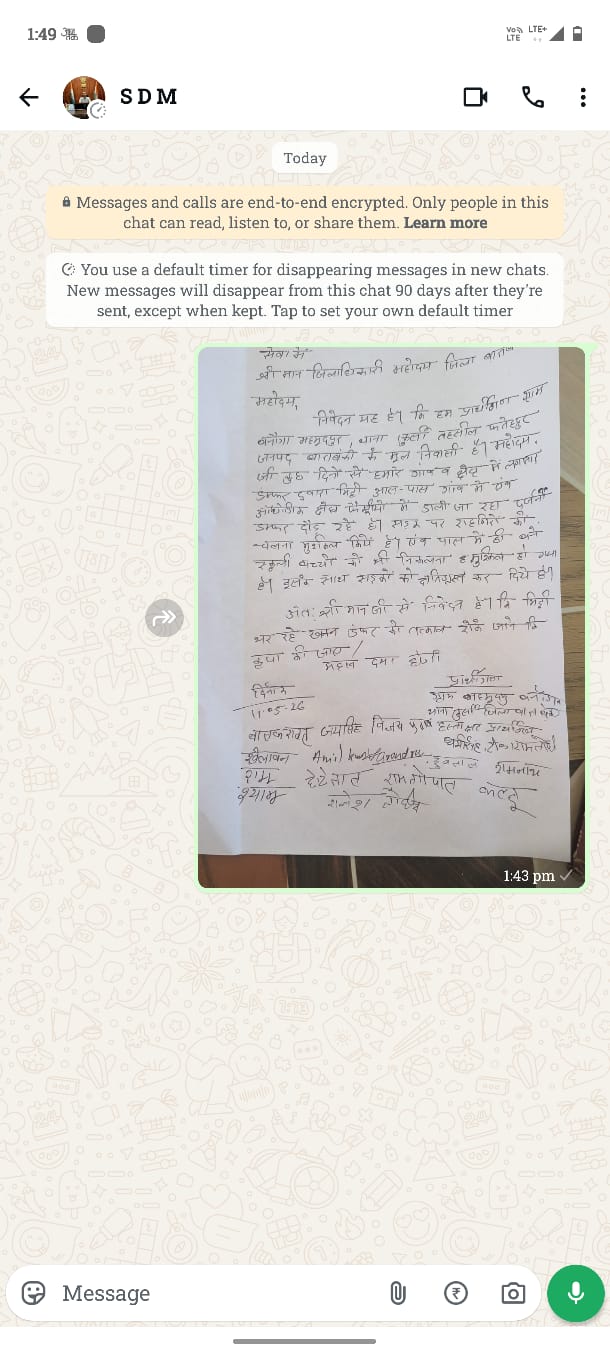 1:49
Vo LTE LTE+
S D M
Today
Messages and calls are end-to-end encrypted. Only people in this
chat can read, listen to, or share them. Learn more
You use a default timer for disappearing messages in new chats.
New messages will disappear from this chat 90 days after they're
sent, except when kept. Tap to set your own default timer
सेवा में
श्री मान जिलाधिकारी महोदय जिला
महोदय,
निवेदन यह है। कि हम प्रार्थीगण ग्राम
महमूदपुर, थाना तहसील फतेहपुर
जनपद बाराबंकी के मूल निवासी है। महोदय.
जी कुछ दिनों से हमारे गांव व क्षेत्र में
डम्फर द्वारा मिट्टी आस-पास गांव में एंव
क्षेत्र में डाली जा रहा दर्जनों
डम्फर दौड़ रहे है। सड़क पर राहगिरो को
चलना मुश्किल किये है। एंव पास में ही बने
स्कूली बच्चों को भी निकलना मुश्किल हो गया
है। इसके साथ सड़को को क्षतिग्रस्त कर दिये है।
अंत: श्री मान जी से निवेदन है। कि मिट्टी
भर रहे खनन डंफर को तत्काल रोके जाने कि
कृपा की जाय/
महान दया होगी
दिनांक
11-05-26
प्रार्थीगण
ग्राम
थाना जिला
जयसिंह विजय
Anil
राम
श्याम
रामगोपाल
राकेश
कल्लू
1:43 pm
Message